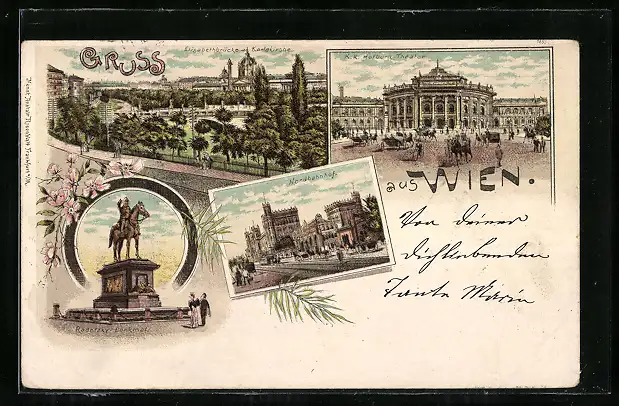 GRUSS
Elisabethbrücke u. Karlskirche
K. K. Hofburg Theater
aus WIEN.
Nordbahnhof
Radetzky-Denkmal
Von deiner
dichliebenden
Tante Marie